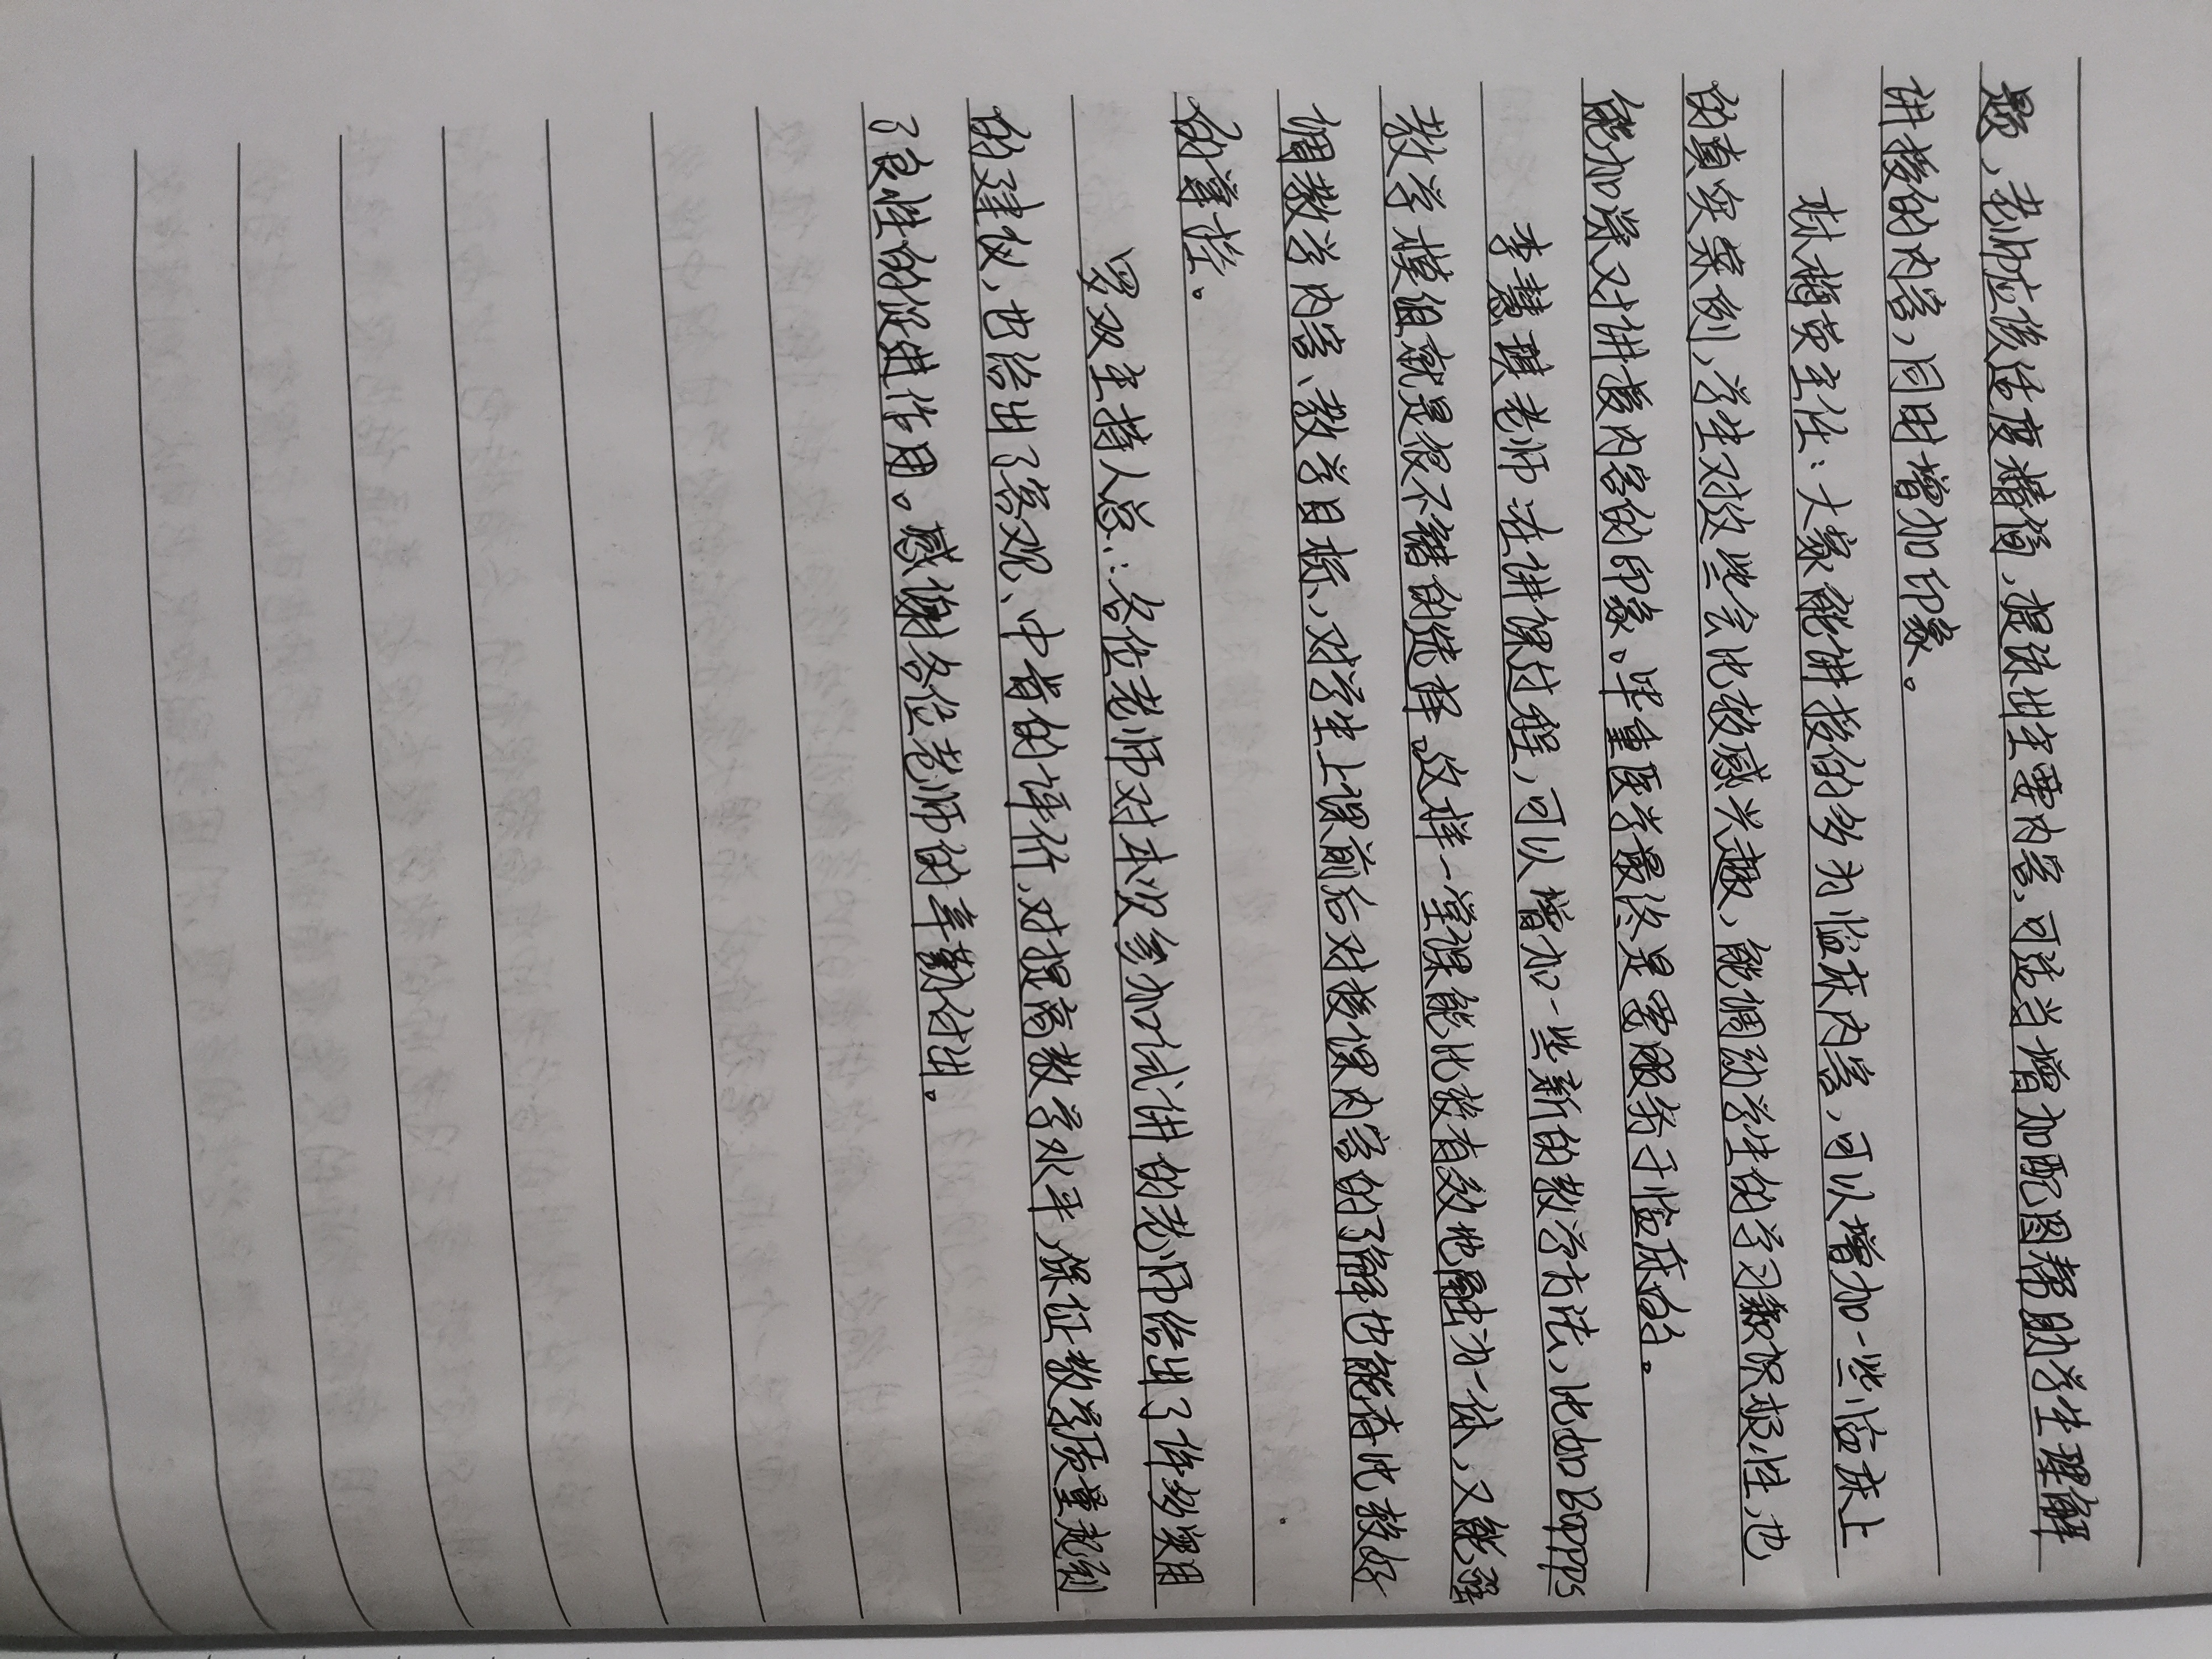 题，老师应该适度精简，提炼出主要内容，可适当增加配图帮助学生理解
讲授的内容，同时增加印象。
林梅英主任：大家能讲授的多为临床内容，可以增加一些临床上
的真实案例，学生对这些会比较感兴趣，能调动学生的学习兴趣积极性，也
能加深对讲授内容的印象。毕竟医学最终是要服务于临床的。
李慧琪老师：在讲课过程，可以增加一些新的教学方法，比如Bopps
教学模组就是很不错的选择，这样一堂课能比较有效地融为一体，又能强
调教学内容、教学目标，对学生上课前后对授课内容的了解也能有比较好
的掌控。
罗双主持人总：各位老师对本次参加试讲的老师给出了许多实用
的建议，也给出了客观、中肯的评价，对提高教学水平，保证教学质量起到
了良性的促进作用。感谢各位老师的辛勤付出。